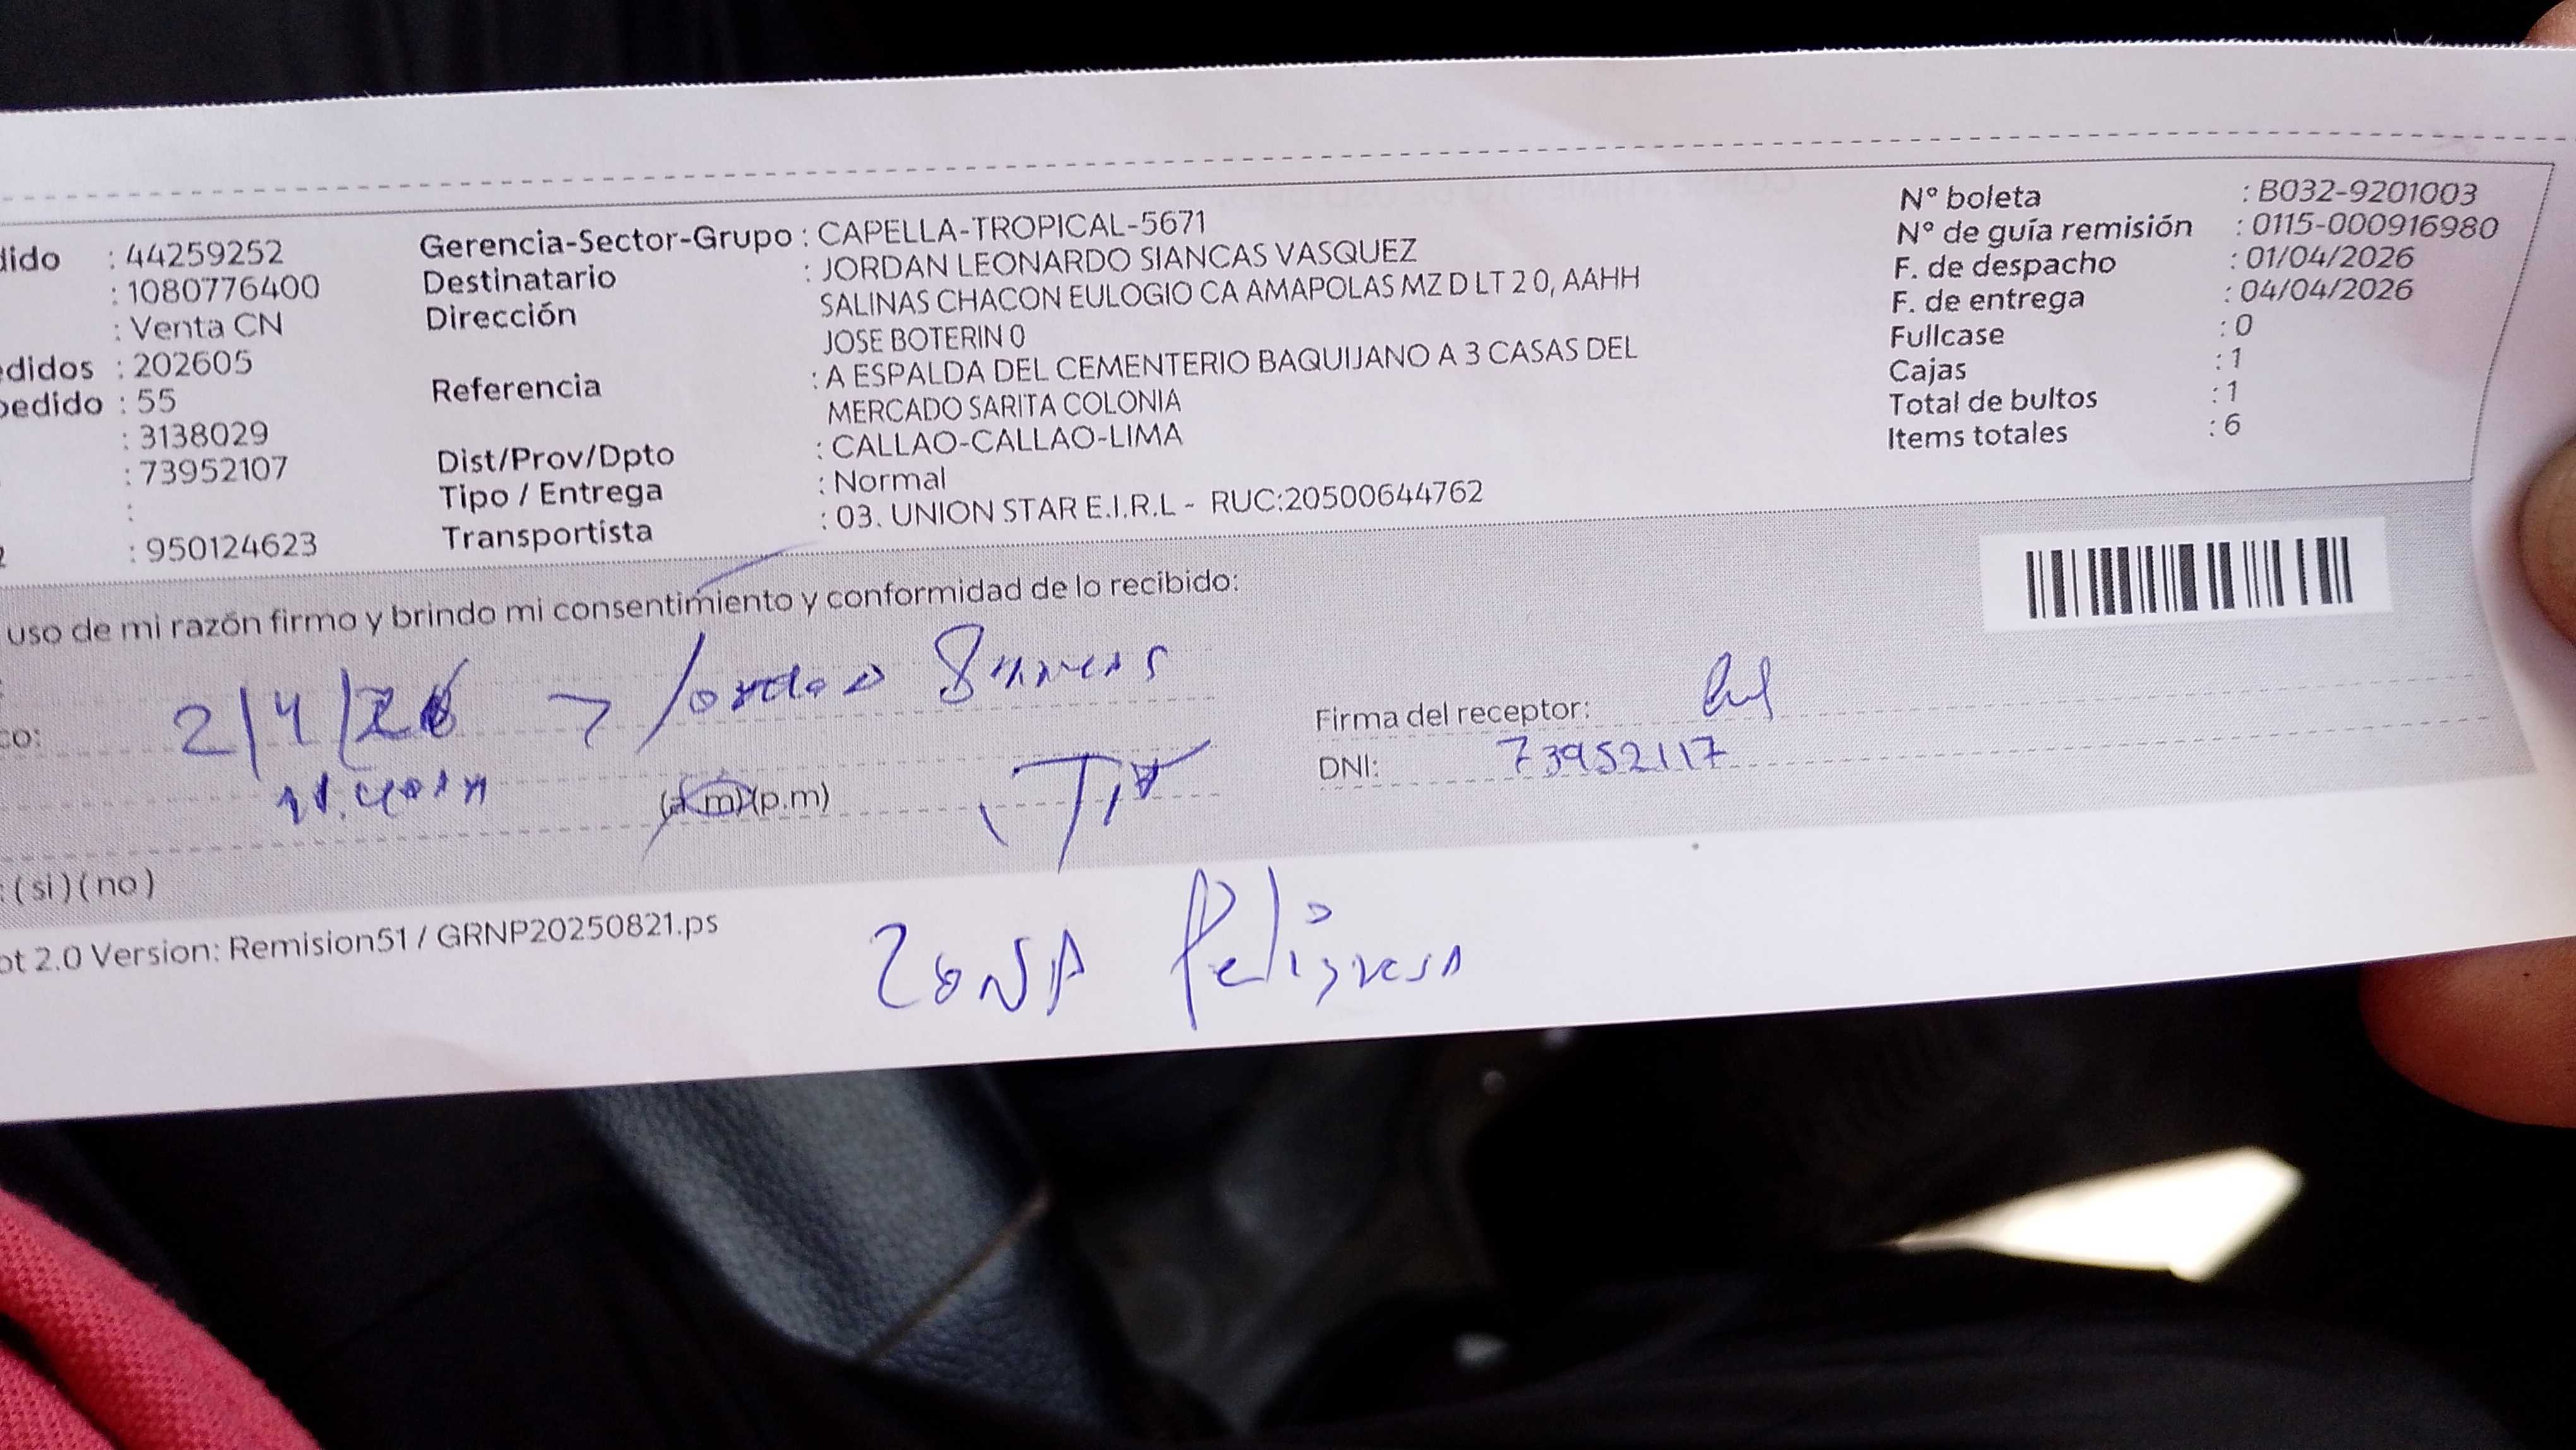 dido : 44259252
: 1080776400
: Venta CN
edidos : 202605
pedido : 55
: 3138029
: 73952107
:
: 950124623
Gerencia-Sector-Grupo : CAPELLA-TROPICAL-5671
Destinatario : JORDAN LEONARDO SIANCAS VASQUEZ
Dirección SALINAS CHACON EULOGIO CA AMAPOLAS MZ D LT 2 0, AAHH
JOSE BOTERIN 0
Referencia : A ESPALDA DEL CEMENTERIO BAQUIJANO A 3 CASAS DEL
MERCADO SARITA COLONIA
Dist/Prov/Dpto : CALLAO-CALLAO-LIMA
Tipo / Entrega : Normal
Transportista : 03. UNION STAR E.I.R.L - RUC:20500644762
N° boleta : B032-9201003
N° de guía remisión : 0115-000916980
F. de despacho : 01/04/2026
F. de entrega : 04/04/2026
Fullcase : 0
Cajas : 1
Total de bultos : 1
Items totales : 6
uso de mi razón firmo y brindo mi consentimiento y conformidad de lo recibido:
co: 2/4/26 Jordan
(a.m)(p.m)
Firma del receptor:
DNI: 73952117
: (si) (no)
ot 2.0 Version: Remision51 / GRNP20250821.ps
ZONA Peligrosa